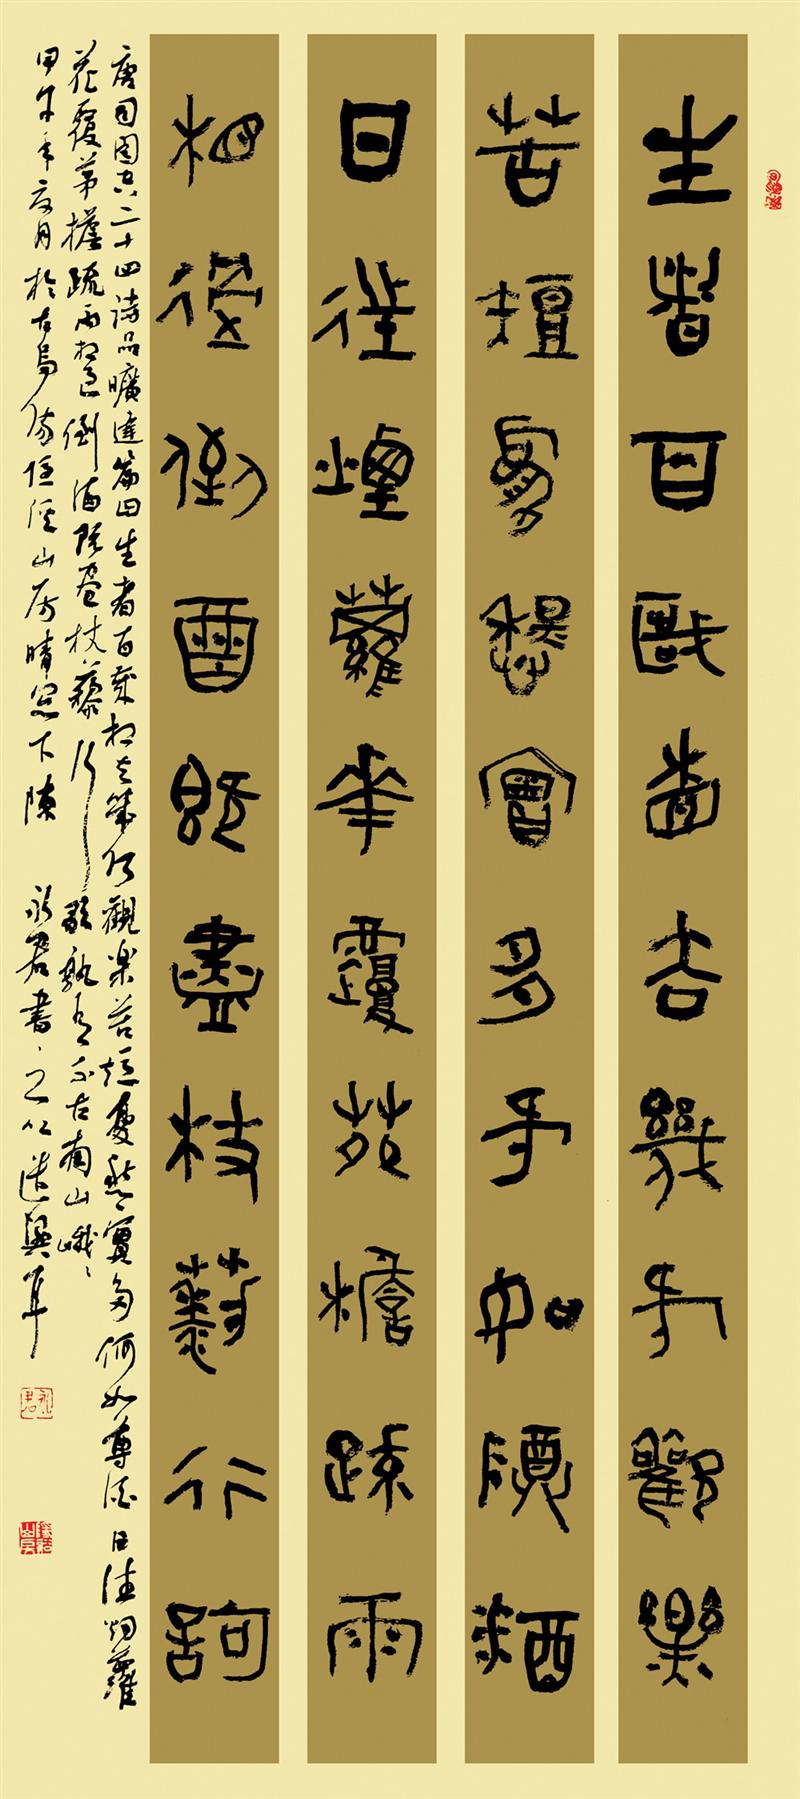 生者百歲相去幾何觀樂
苦短憂愁實多何如尊酒
日往煙蘿華覆茆檐疎雨
相過倒酒既盡杖藜行歌
唐司图空二十四詩品曠達篇曰生者百歲相去幾何觀楽苦短憂愁實多何如尊酒日往烟蘿
花覆茅檐疏雨相過倒酒既盡杖藜行歌孰有不古南山峨〻
甲午年夏月於古烏傷 溪山房晴窓下陳永君書之以遣興耳
永君